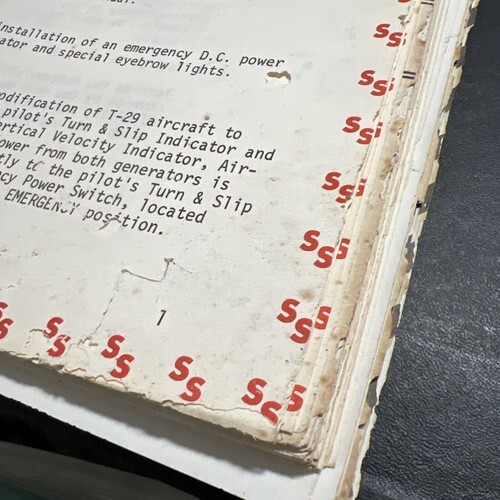 installation of an emergency D.C. power
ator and special eyebrow lights.
odification of T-29 aircraft to
pilot's Turn & Slip Indicator and
ertical Velocity Indicator, Air-
ower from both generators is
tly to the pilot's Turn & Slip
ncy Power Switch, located
EMERGENCY position.
1
SS
SS
SS
SS
SS
SS
SS
SS
SS
SS